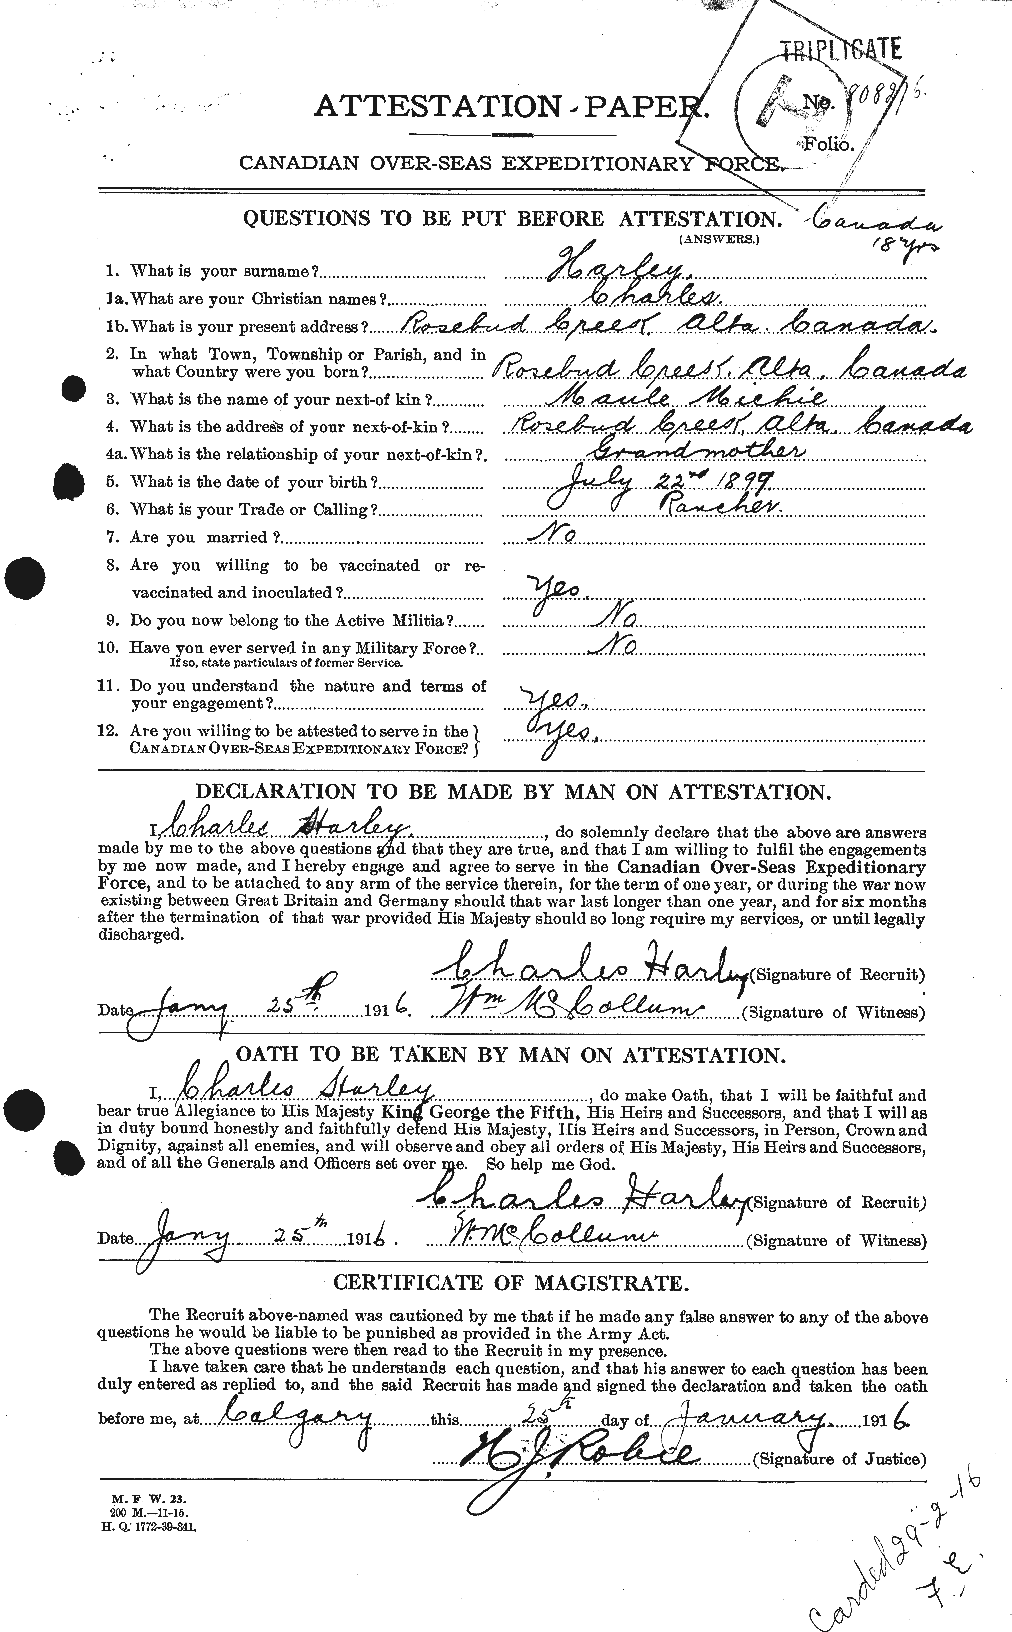 TRIPLICATE
ATTESTATION PAPER.
No.
Folio.
CANADIAN OVER-SEAS EXPEDITIONARY FORCE.
QUESTIONS TO BE PUT BEFORE ATTESTATION. Canada
(ANSWERS.) 18 yrs
1. What is your surname? Harley.
1a. What are your Christian names? Charles.
1b. What is your present address? Rosebud Creek Alta. Canada.
2. In what Town, Township or Parish, and in
what Country were you born? Rosebud Creek, Alta. Canada
3. What is the name of your next-of kin? Maule Michie
4. What is the address of your next-of-kin? Rosebud Creek, Alta. Canada
4a. What is the relationship of your next-of-kin? Grandmother
5. What is the date of your birth? July 22nd 1897
6. What is your Trade or Calling? Rancher.
7. Are you married? No
8. Are you willing to be vaccinated or re-
vaccinated and inoculated? Yes.
9. Do you now belong to the Active Militia? No
10. Have you ever served in any Military Force? No
If so, state particulars of former Service.
11. Do you understand the nature and terms of
your engagement? Yes.
12. Are you willing to be attested to serve in the
CANADIAN OVER-SEAS EXPEDITIONARY FORCE? Yes.
DECLARATION TO BE MADE BY MAN ON ATTESTATION.
I, Charles Harley, do solemnly declare that the above are answers
made by me to the above questions and that they are true, and that I am willing to fulfil the engagements
by me now made, and I hereby engage and agree to serve in the Canadian Over-Seas Expeditionary
Force, and to be attached to any arm of the service therein, for the term of one year, or during the war now
existing between Great Britain and Germany should that war last longer than one year, and for six months
after the termination of that war provided His Majesty should so long require my services, or until legally
discharged.
Charles Harley (Signature of Recruit)
Date Jany 25th 1916. Wm McCollum (Signature of Witness)
OATH TO BE TAKEN BY MAN ON ATTESTATION.
I, Charles Harley, do make Oath, that I will be faithful and
bear true Allegiance to His Majesty King George the Fifth, His Heirs and Successors, and that I will as
in duty bound honestly and faithfully defend His Majesty, His Heirs and Successors, in Person, Crown and
Dignity, against all enemies, and will observe and obey all orders of His Majesty, His Heirs and Successors,
and of all the Generals and Officers set over me. So help me God.
Charles Harley (Signature of Recruit)
Date Jany 25th 1916. W McCollum (Signature of Witness)
CERTIFICATE OF MAGISTRATE.
The Recruit above-named was cautioned by me that if he made any false answer to any of the above
questions he would be liable to be punished as provided in the Army Act.
The above questions were then read to the Recruit in my presence.
I have taken care that he understands each question, and that his answer to each question has been
duly entered as replied to, and the said Recruit has made and signed the declaration and taken the oath
before me, at Calgary this 25th day of January. 1916.
H J. Robie (Signature of Justice)
M. F W. 23.
200 M.—11-15.
H. Q. 1772-39-841.
Carded 29-2-16
F. E.